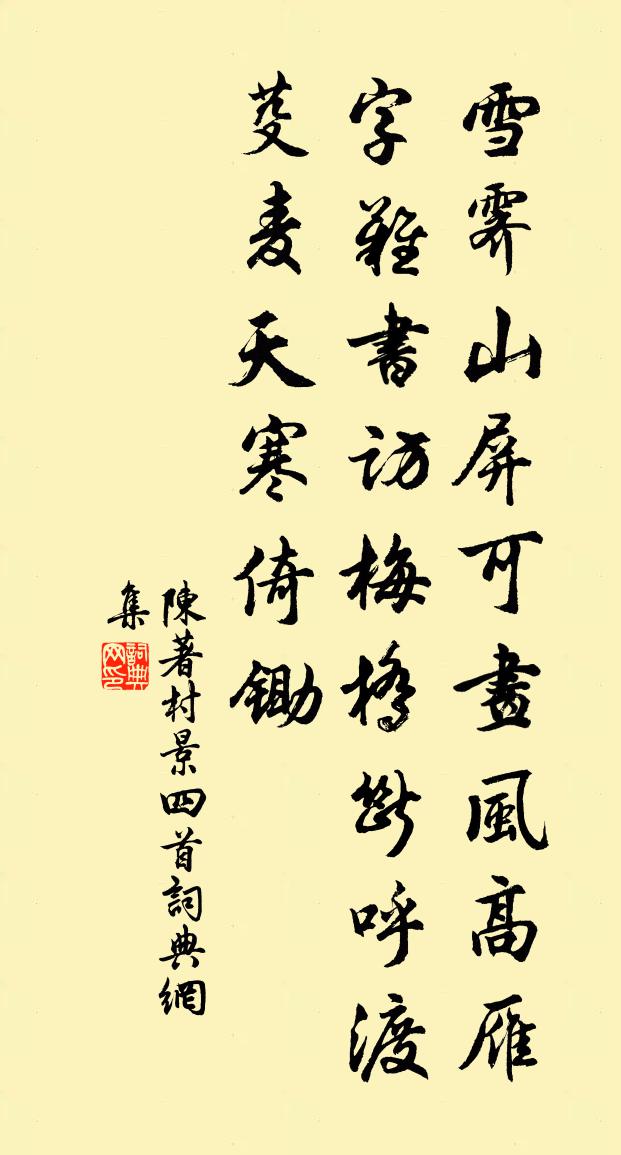 雪霽山屏可畫風高雁
字難書訪梅橋斷呼渡
芟麦天寒倚鋤
陳著村景四首詞典網
集
詞典
网印